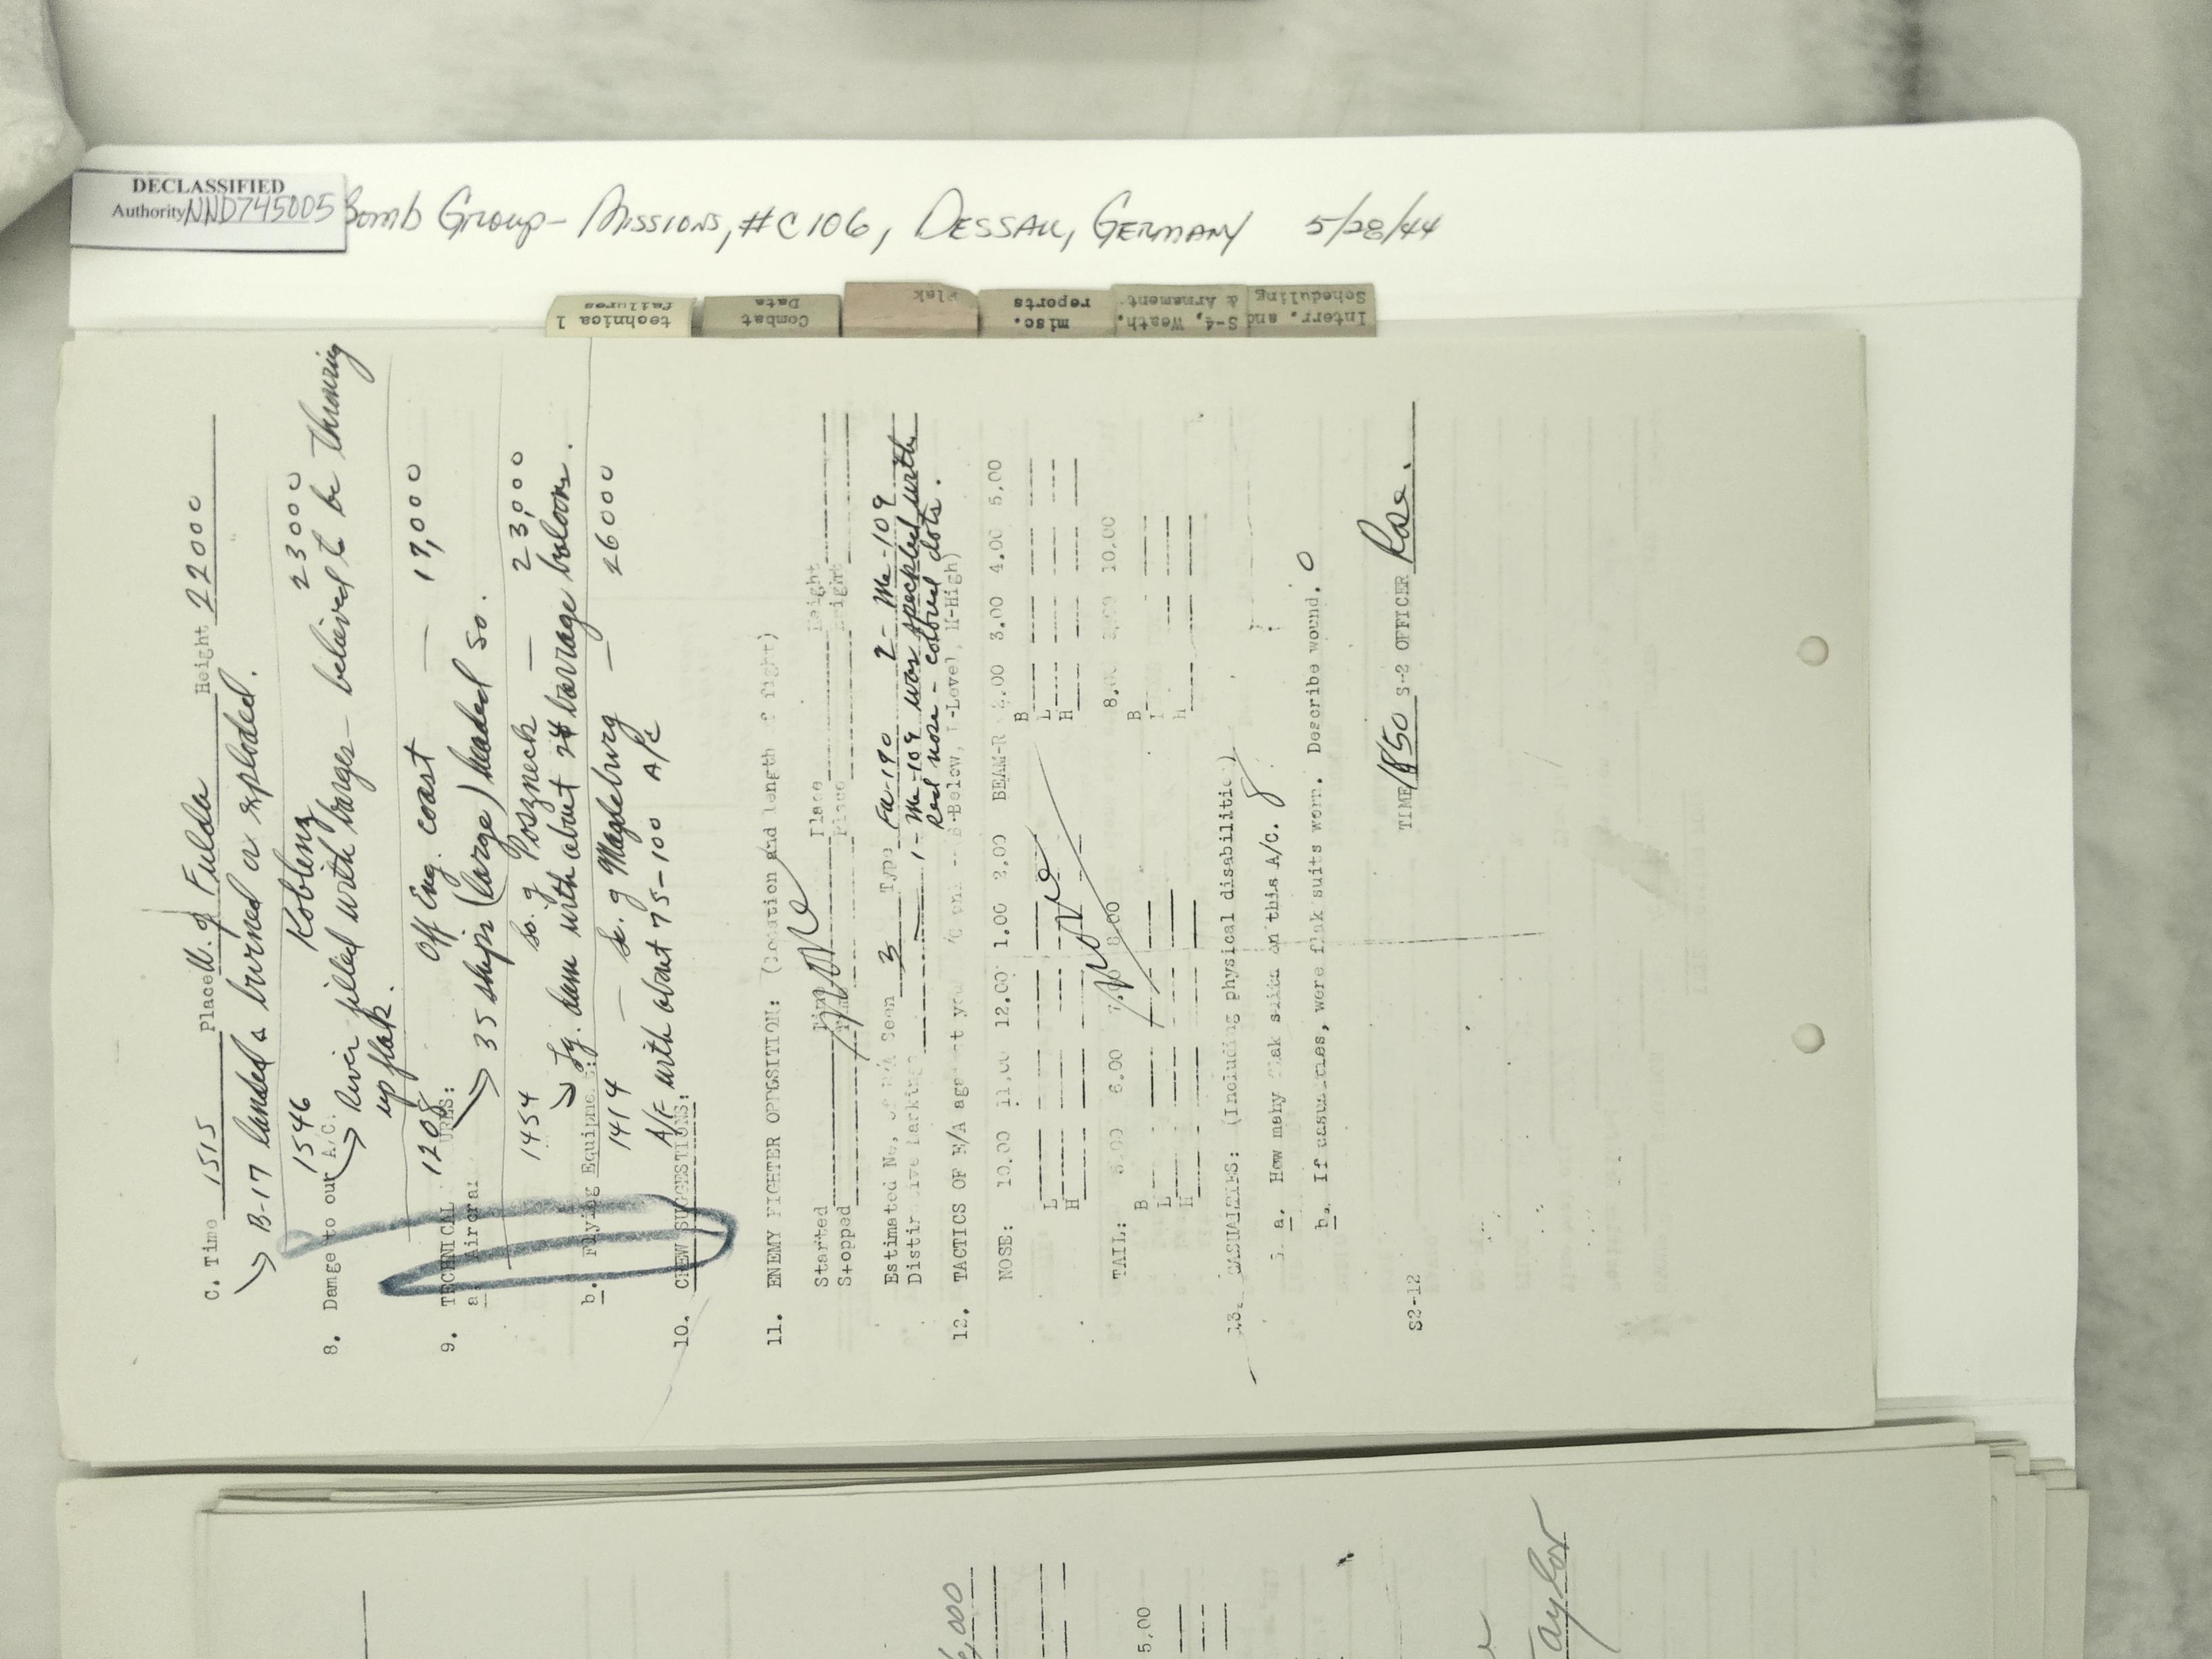 DECLASSIFIED
Authority NND745005
Bomb Group- Missions, #C106, Dessau, Germany 5/28/44
technical failures
Combat Data
Flak
misc. reports
S-4, Weath. & Armament
Interr. and Scheduling
C. Time 1515 Place W. of Fulda Height 22000
B-17 landed & burned or exploded.
1546 Koblenz 23000
8. Damage to our A/C.
River filled with barges - believed to be throwing
up flak.
1208 Off Eng. coast — 17,000
9. TECHNICAL URES:
a. Aircraft
35 ships (large) headed so.
1454 so. of Poszneck — 23,000
Lg. dam with about 24 barrage baloons.
b. Flying Equipment:
1414 — so. of Magdeburg — 26000
A/F with about 75-100 A/C
10. CREW SUGGESTIONS:
11. ENEMY FIGHTER OPPOSITION: (Location and length of fight)
Started Time Place Height
Stopped Time Place Height
None
Estimated No. of E/A Seen 3 Type Fw-190 2- Me-109
Distinctive Markings 1- Me-109 was speckled with
Red nose - colored dots.
12. TACTICS OF E/A against you (B-Below, L-Level, H-High)
NOSE: 10.00 11.00 12.00 1.00 2.00 BEAM-R 2.00 3.00 4.00 5.00
B
L L
H H
None
TAIL: 5.00 6.00 7.00 8.00 8.00 9.00 10.00
B B
L L
H H
13. CASUALTIES: (Including physical disabilities)
a. How many flak suits on this A/C. 8
b. If casualties, were flak suits worn. Describe wound. 0
TIME 1850 S-2 OFFICER Rose.
S2-12
,000
5.00
Taylor